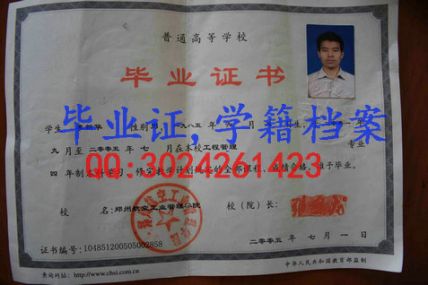 普通高等学校
毕业证书
学生 性别 一九八五年 月 日生，
九月至二〇〇五年 七 月在本校工程管理 专业
四 年制本科学习，修完教学计划规定的全部课程，成绩合格，准予毕业。
毕业证,学籍档案
QQ:3024261423
校 名:郑州航空工业管理学院 校（院）长：
证书编号:104851200505002858 二〇〇五年 七月 一 日
查询网址:http://www.chsi.com.cn 中华人民共和国教育部监制